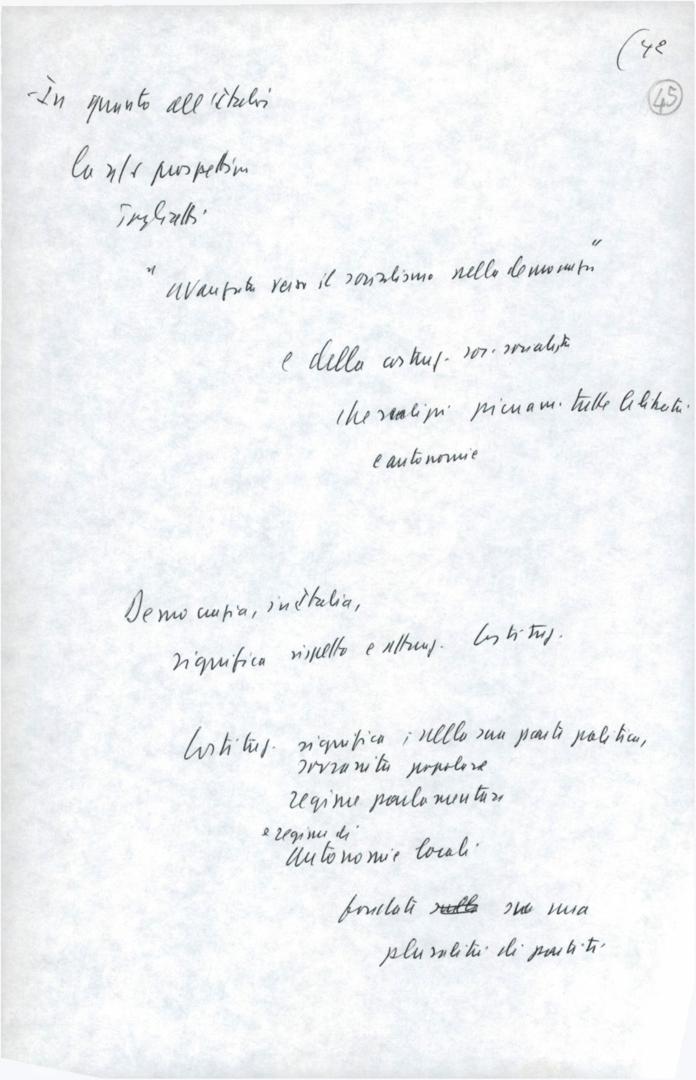 (42
45
- In quanto all'Italia
la n/s prospettiva
Togliatti
"avanzata verso il socialismo nella democrazia"
e della costruz. soc. socialista
che realizzi pienam. tutte le libertà
e autonomie
Democrazia, in Italia,
significa rispetto e attuaz. Costituz.
Costituz. significa, nella sua parte politica,
sovranità popolare
regime parlamentare
e regime di
autonomie locali
fondati sulla su una
pluralità di partiti